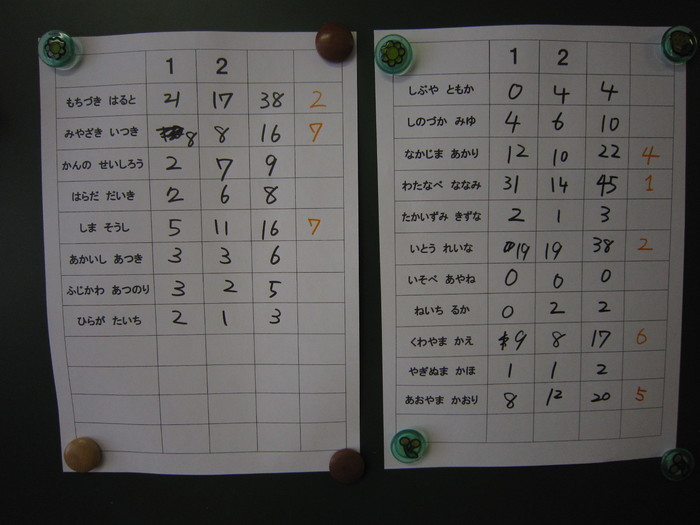 1 2
もちづき はると 21 17 38 2
みやざき いつき 8 8 16 7
かんの せいしろう 2 7 9
はらだ だいき 2 6 8
しま そうし 5 11 16 7
あかいし あつき 3 3 6
ふじかわ あつのり 3 2 5
ひらが たいち 2 1 3
1 2
しぶや ともか 0 4 4
しのづか みゆ 4 6 10
なかじま あかり 12 10 22 4
わたなべ ななみ 31 14 45 1
たかいずみ きずな 2 1 3
いとう れいな 19 19 38 2
いそべ あやね 0 0 0
ねいち るか 0 2 2
くわやま かえ 9 8 17 6
やぎぬま かほ 1 1 2
あおやま かおり 8 12 20 5